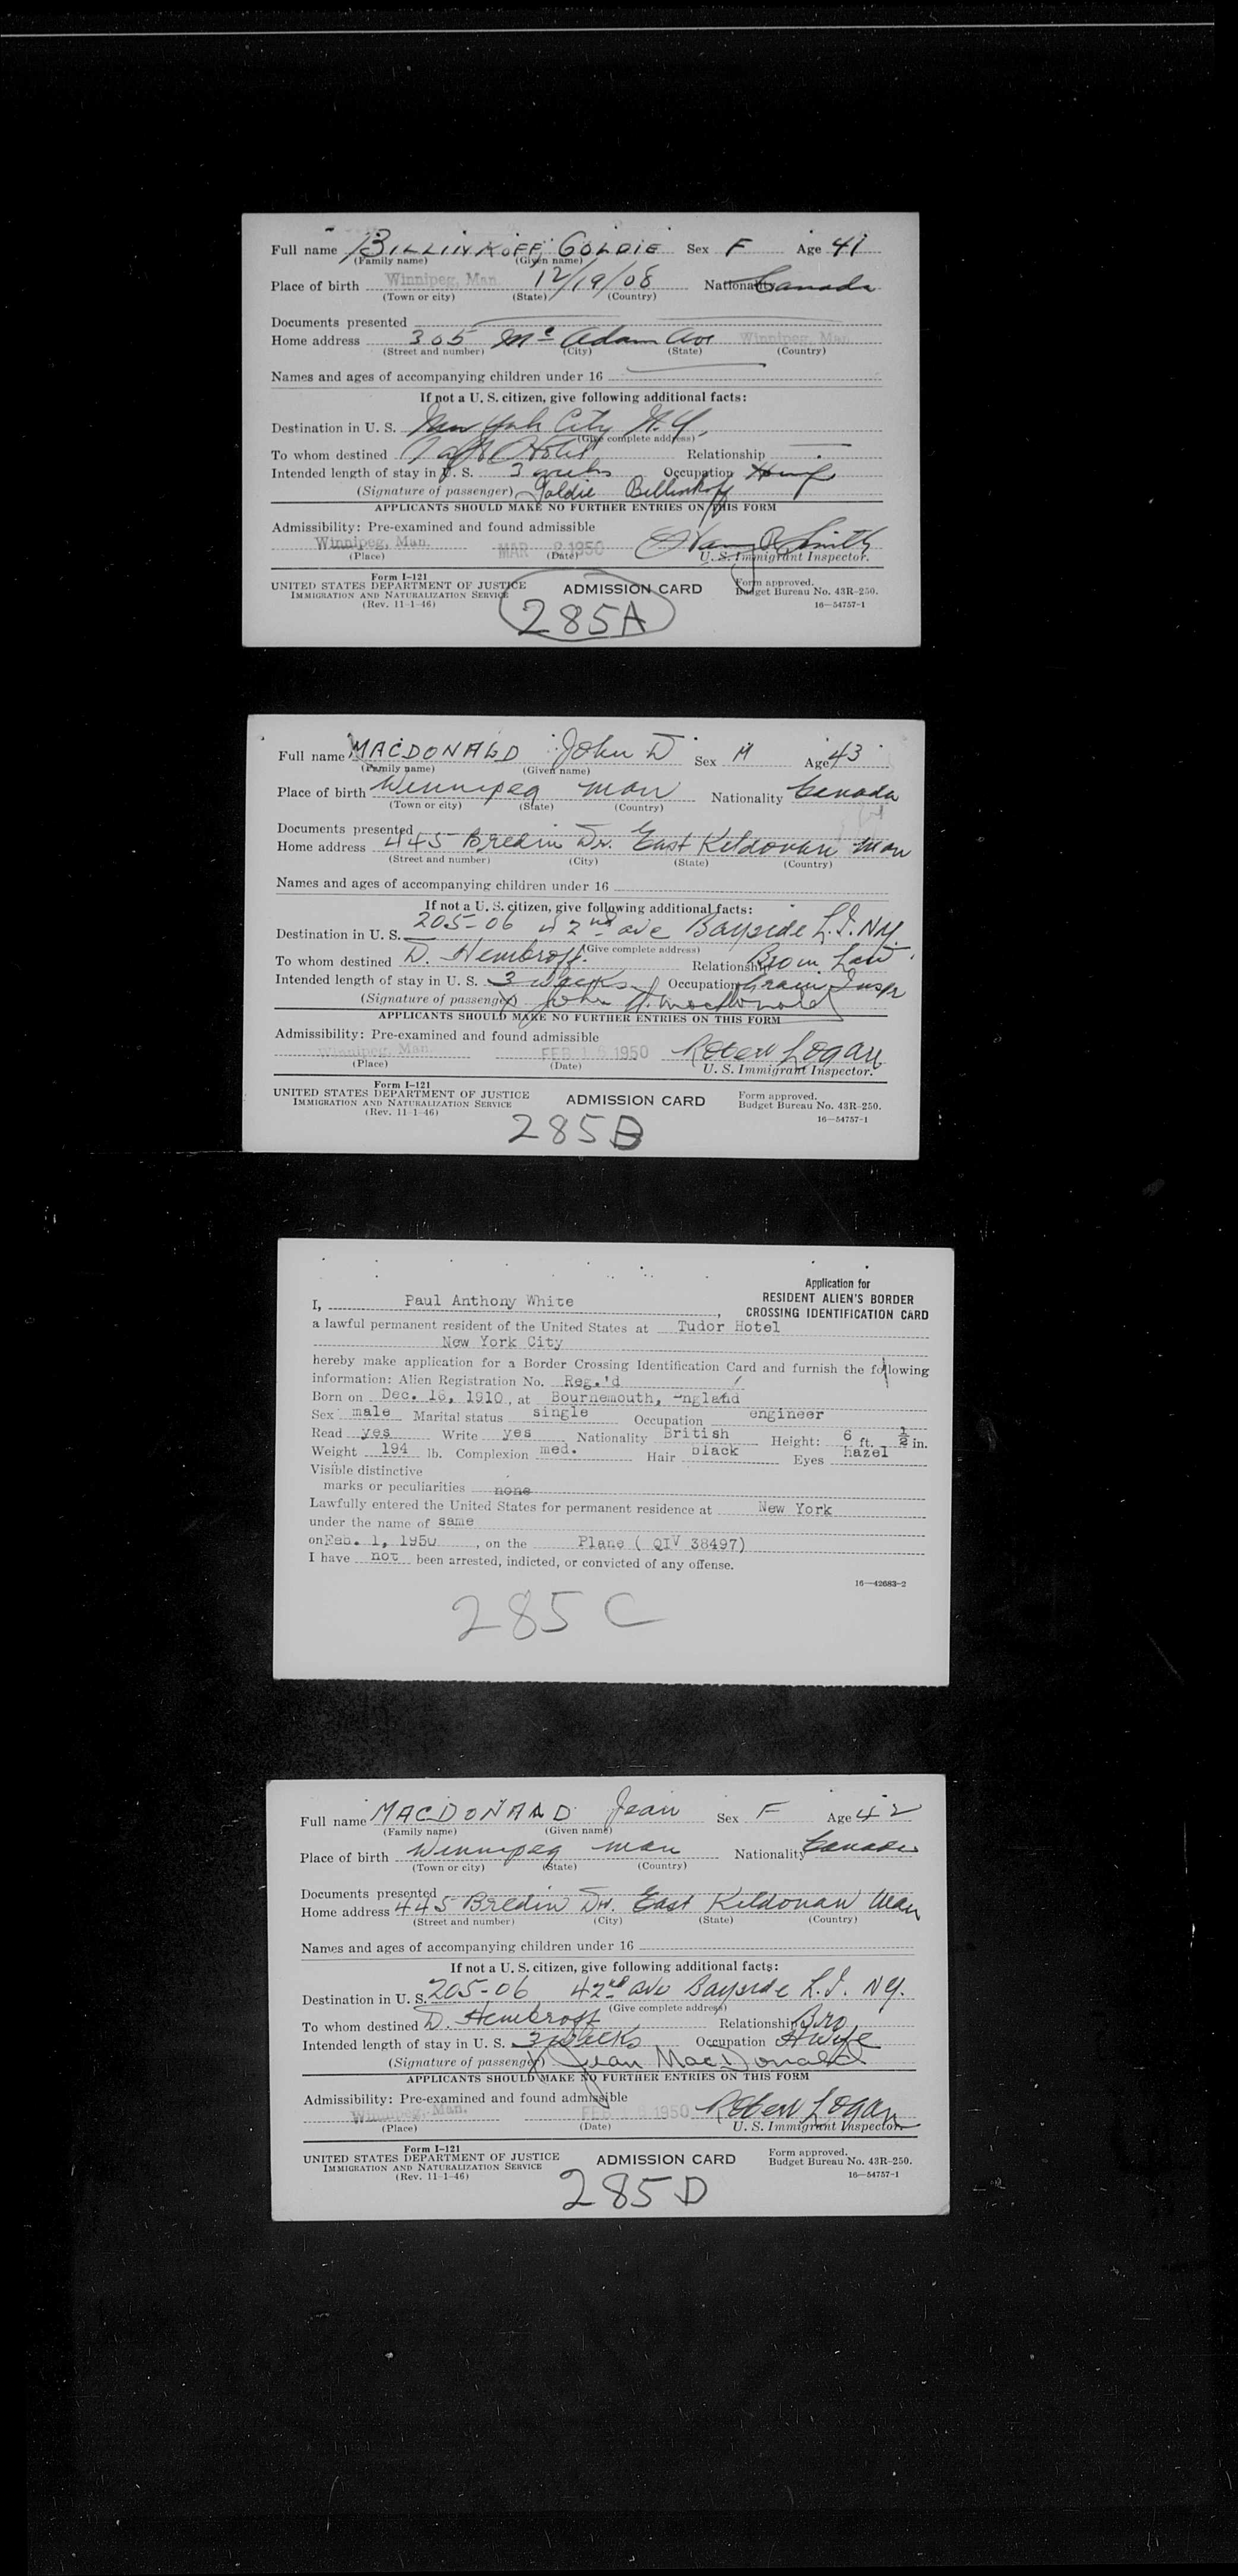 Full name BILLINKOFF GOLDIE Sex F Age 41
(Family name) (Given name)
Place of birth Winnipeg, Man. 12/19/08 Nationality Canada
(Town or city) (State) (Country)
Documents presented
Home address 305 Mc Adam Ave Winnipeg, Man.
(Street and number) (City) (State) (Country)
Names and ages of accompanying children under 16
If not a U. S. citizen, give following additional facts:
Destination in U. S. New York City N.Y.
(Give complete address)
To whom destined Taft Hotel Relationship
Intended length of stay in U. S. 3 weeks Occupation
(Signature of passenger) Goldie Billinkoff
APPLICANTS SHOULD MAKE NO FURTHER ENTRIES ON THIS FORM
Admissibility: Pre-examined and found admissible
Winnipeg, Man. MAR 2 1950 Smith
(Place) (Date) U. S. Immigrant Inspector.
Form I-121
UNITED STATES DEPARTMENT OF JUSTICE
IMMIGRATION AND NATURALIZATION SERVICE
(Rev. 11-1-46)
ADMISSION CARD
Form approved.
Budget Bureau No. 43R-250.
16—54757-1
285A
Full name MACDONALD John D Sex M Age 43
(Family name) (Given name)
Place of birth Winnipeg Man Nationality Canada
(Town or city) (State) (Country)
Documents presented
Home address 445 Bredin Dr. East Kildonan Man
(Street and number) (City) (State) (Country)
Names and ages of accompanying children under 16
If not a U. S. citizen, give following additional facts:
Destination in U. S. 205-06 42nd ave Bayside L.I. NY.
(Give complete address)
To whom destined D. Hembroff Relationship Bro in Law
Intended length of stay in U. S. 3 weeks Occupation Grain Inspr
(Signature of passenger) X John D. MacDonald
APPLICANTS SHOULD MAKE NO FURTHER ENTRIES ON THIS FORM
Admissibility: Pre-examined and found admissible
Winnipeg, Man. FEB 15 1950 Robert Logan
(Place) (Date) U. S. Immigrant Inspector.
Form I-121
UNITED STATES DEPARTMENT OF JUSTICE
IMMIGRATION AND NATURALIZATION SERVICE
(Rev. 11-1-46)
ADMISSION CARD
Form approved.
Budget Bureau No. 43R-250.
16—54757-1
285B
Application for
RESIDENT ALIEN'S BORDER
CROSSING IDENTIFICATION CARD
I, Paul Anthony White,
a lawful permanent resident of the United States at Tudor Hotel
New York City
hereby make application for a Border Crossing Identification Card and furnish the following
information: Alien Registration No. Reg.'d
Born on Dec. 16, 1910, at Bournemouth, England
Sex male Marital status single Occupation engineer
Read yes Write yes Nationality British Height: 6 ft. ½ in.
Weight 194 lb. Complexion med. Hair black Eyes hazel
Visible distinctive
marks or peculiarities none
Lawfully entered the United States for permanent residence at New York
under the name of same
on Feb. 1, 1950, on the Plane ( QIV 38497)
I have not been arrested, indicted, or convicted of any offense.
16—42683-2
285 C
Full name MACDONALD Jean Sex F Age 42
(Family name) (Given name)
Place of birth Winnipeg Man Nationality Canada
(Town or city) (State) (Country)
Documents presented
Home address 445 Bredin Dr. East Kildonan Man
(Street and number) (City) (State) (Country)
Names and ages of accompanying children under 16
If not a U. S. citizen, give following additional facts:
Destination in U. S. 205-06 42nd ave Bayside L.I. NY.
(Give complete address)
To whom destined D. Hembroff Relationship Bro
Intended length of stay in U. S. 3 weeks Occupation Hwife
(Signature of passenger) X Jean MacDonald
APPLICANTS SHOULD MAKE NO FURTHER ENTRIES ON THIS FORM
Admissibility: Pre-examined and found admissible
Winnipeg, Man. FEB 1950 Robert Logan
(Place) (Date) U. S. Immigrant Inspector.
Form I-121
UNITED STATES DEPARTMENT OF JUSTICE
IMMIGRATION AND NATURALIZATION SERVICE
(Rev. 11-1-46)
ADMISSION CARD
Form approved.
Budget Bureau No. 43R-250.
16—54757-1
285D